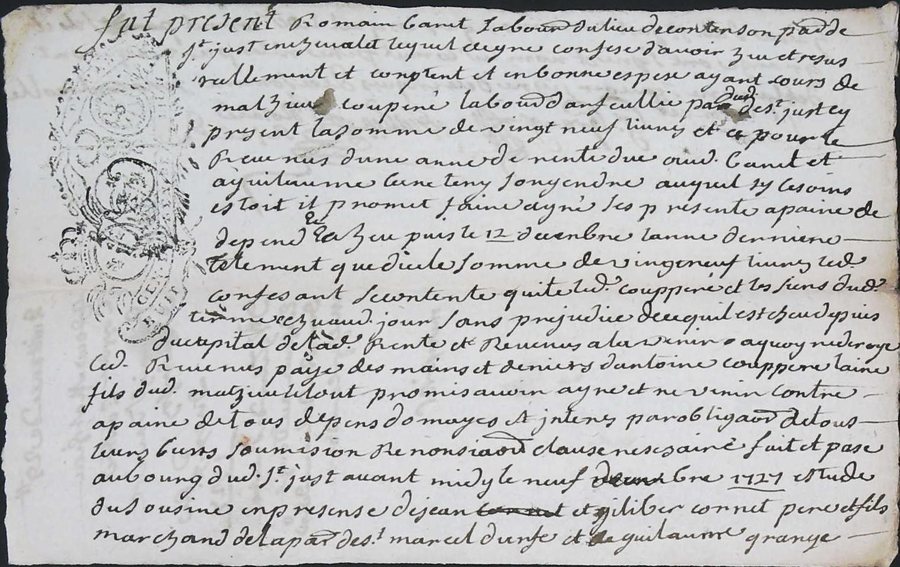 fut present Romain Canet Laboud dulieu decontenson pard de
st just enchevalet lequel degre confese d'avoir Recu et resus
reellement et contant et en bonne espese ayant cours de
mathieu coupéré laboud d'anfeullie pard dud st just ey
present la somme de vingt neuf livres et ce pour le
Revenus d'une anne de rente due aud. Canet et
a guilaume son gendre auquel sy besoins
estoit il promet faire agrée les presente a paine de
depens Recu puis le 12 decenbre lanne derniere
telement que dicele somme de vingt neuf livres led.
confesant se contente quite led. coupperé et les siens dud.
terme echu aud. jour sans prejudice de ce quil est cheu depuis
du capital de lad. Rente et Revenus a la venir aquoy ne deroge
led. Revenus payé des mains et deniers d'antoine couppere laine
fils dud. mathieu le tout promis avoir agre et ne venir contre
apaine de tous depens domages et interez par obligaon de tous
leurs biens soumision Renonsiaon clause nesesairé fait et pase
aubourg dud. st just avant midy le neuf decenbre 1727 estude
du sousine en presense de jean et giliber cornet pere et fils
marchand de la pard de st marcel d'urfe et de guilaume grange